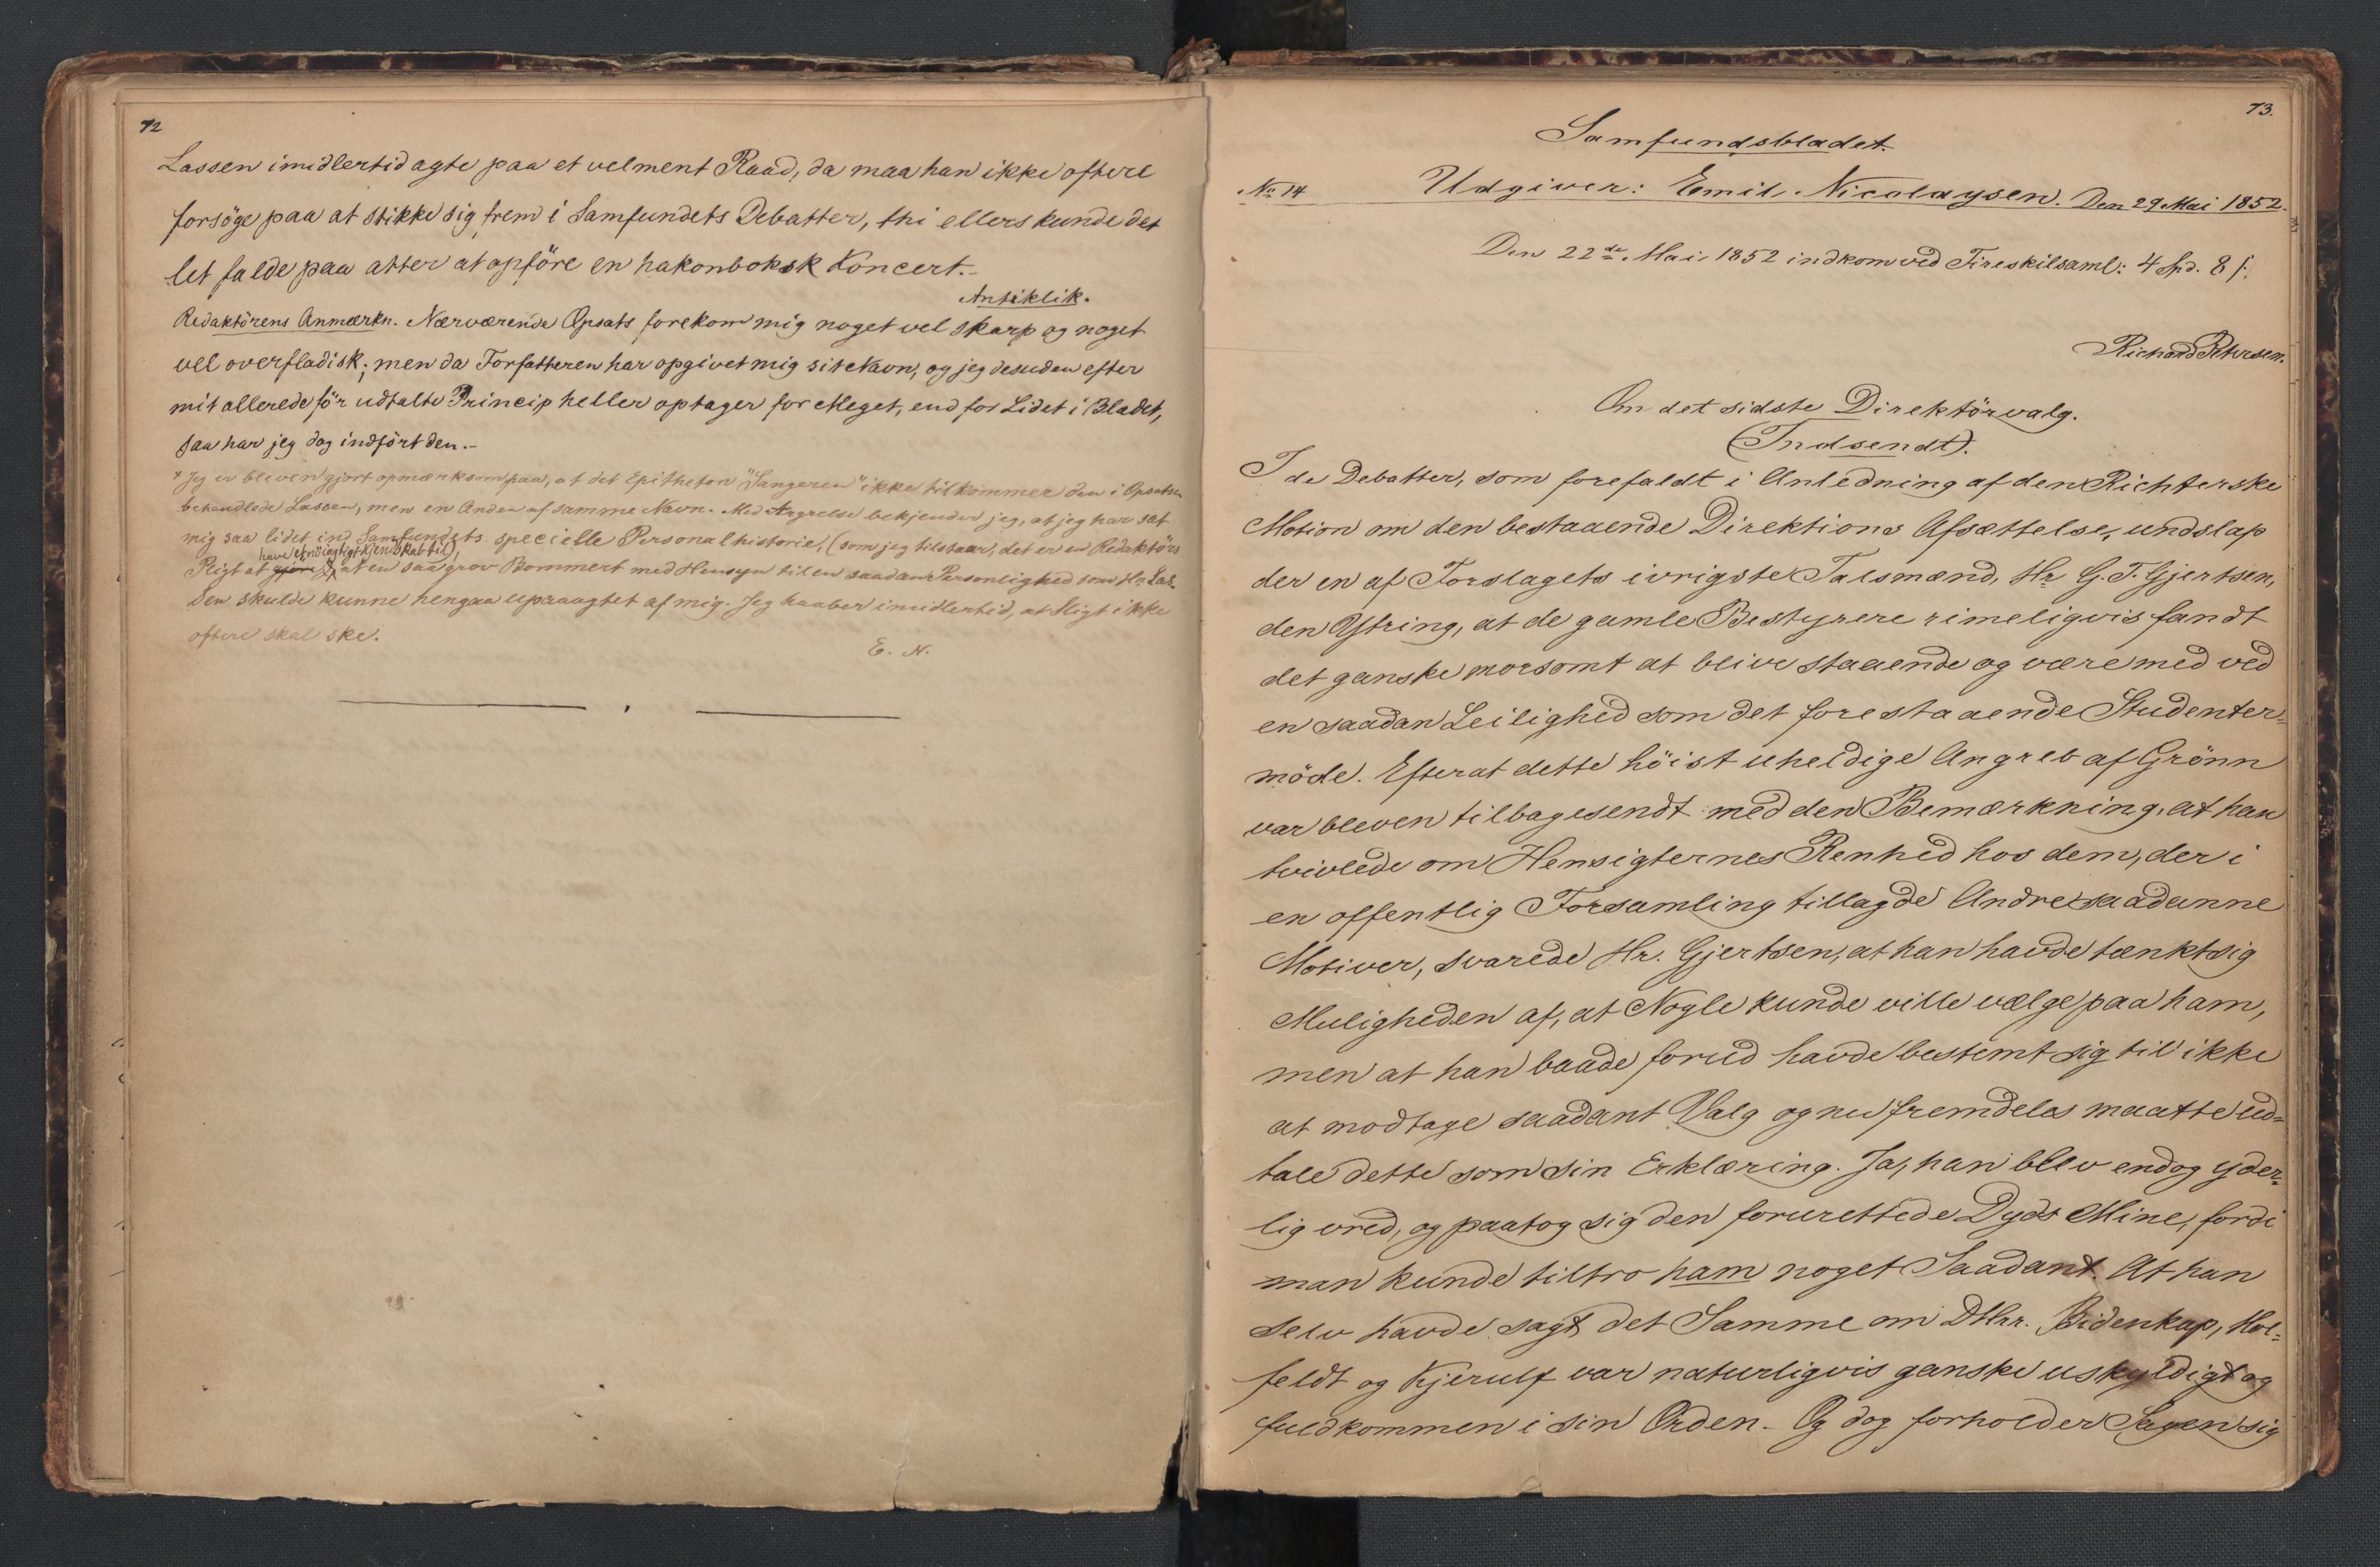 72
Lassen imidlertid agte paa et velment Raad, da maa han ikke oftere
forsöge paa at stikke sig frem i Samfundets Debatter, thi ellers kunde det
let falde paa atter at opföre en hakonboksk Koncert.-
Antiklik.
Redaktörens Anmærkn. Nærværende Opsats forekom mig noget vel skarp og noget
vel overfladisk; men da Forfatteren har opgivet mig sit Navn, og jeg desuden efter
mit allerede för udtalte Princip heller optager for Meget, end for Lidet i Bladet,
saa har jeg dog indfört den.-
* Jeg er bleven gjort opmærksom paa, at det Epitheton "Sangeren" ikke tilkommer den i Opsatsen
behandlede Lassen, men en Anden af samme Navn. Med Ærgrelse bekjender jeg, at jeg har sat
mig saa lidet ind Samfundets specielle Personalhistorie, (som jeg tilstaar, det er en Redaktörs
have et nöiagtigt Kjendskab til),
Pligt at gjöre at en saa grov Bommert med Hensyn til en saadan Personlighed som Hr. Las-
sen skulde kunne hengaa upaaagtet af mig. Jeg haaber imidlertid, at Sligt ikke
oftere skal ske.
E. N.
73.
Samfundsbladet.
No 14 Udgiver: Emil Nicolaysen. Den 29 Mai 1852.
Den 22de Mai 1852 indkom ved Fireskilsaml: 4 Spd. 8 ſ.
Richard Petersen.
Om det sidste Direktörvalg.
(Indsendt).
I de Debatter, som forefaldt i Anledning af den Richterske
Motion om den bestaaende Direktions Afsættelse, undslap
der en af Forslagets ivrigste Talsmænd, Hr G. F. Gjertsen,
den Ytring, at de gamle Bestyrere rimeligvis fandt
det ganske morsomt at blive staaende og være med ved
en saadan Leilighed som det forestaaende Studenter-
möde. Efterat dette höist uheldige Angreb af Grönn
var bleven tilbagesendt med den Bemærkning, at han
tvivlede om Hensigternes Renhed hos dem, der i
en offentlig Forsamling tillagde Andre saadanne
Motiver, svarede Hr. Gjertsen, at han havde tænkt sig
Muligheden af, at Nogle kunde ville vælge paa ham,
men at han baade forud havde bestemt sig til ikke
at modtage saadant Valg og nu fremdeles maatte ud-
tale dette som sin Erklæring. Ja, han blev endog yder-
lig vred, og paatog sig den forurettede Dyds Mine, fordi
man kunde tiltro ham noget Saadant. At han
selv havde sagt det Samme om DHrr. Bidenkap, Hol-
feldt og Kjerulf var naturligvis ganske uskyldigt og
fuldkommen i sin Orden. Og dog forholder Sagen sig